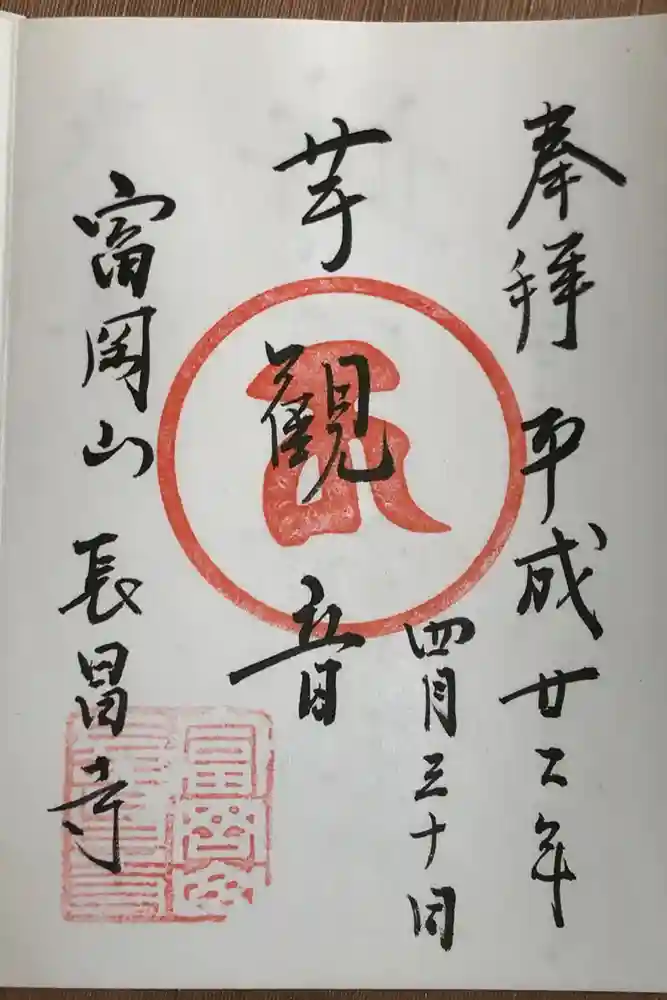 奉拝 平成廿二年
四月三十日
芋觀音
富岡山 長昌寺